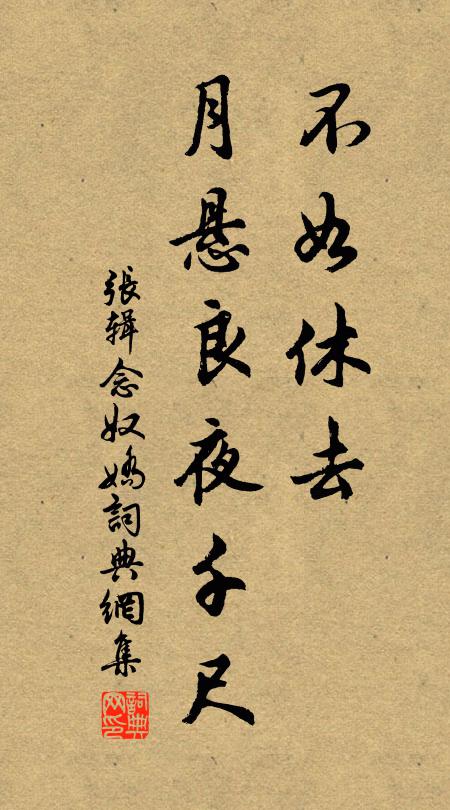 不如休去
月悬良夜千尺
張輯念奴嬌詞典網集
詞典
网印